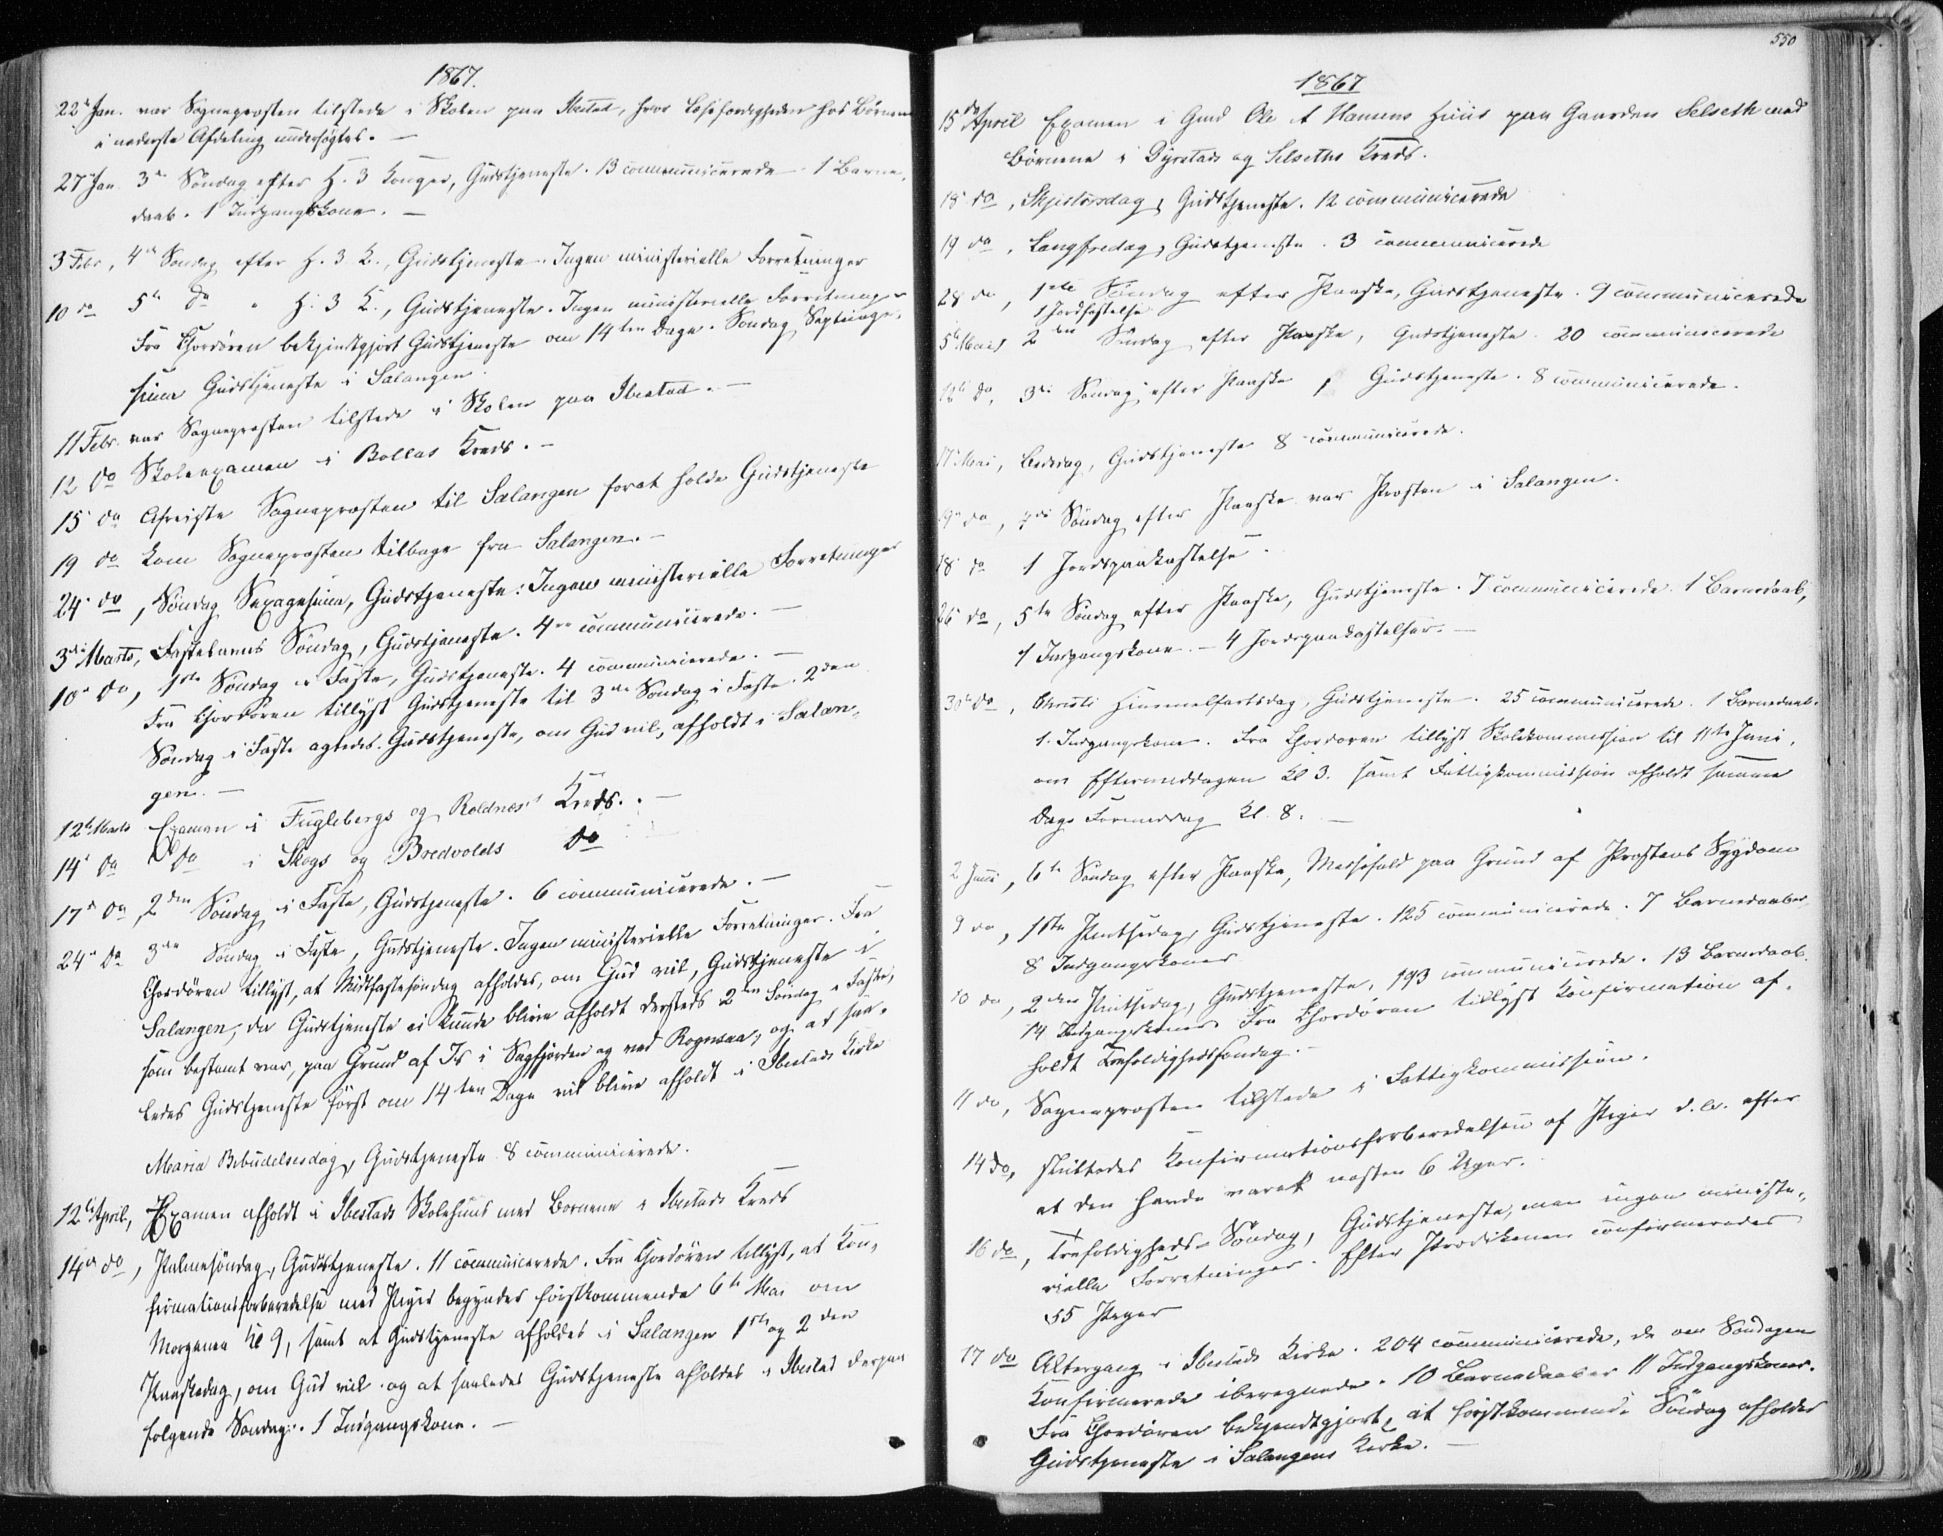 1867.
22 Jan. var Sognepresten tilstede i Skolen paa Ibestad, hvor Læsefærdigheden hos Børnene
i nederste Afdeling undersøgtes. —
27 Jan. 3de Søndag efter H. 3 Konger, Gudstjeneste. 13 communicerede — 1 Barne-
daab. 1 Indgangskone. —
3 Febr, 4de Søndag efter H. 3 K., Gudstjeneste. Ingen ministerielle Forretninger
10 do 5te do " H. 3 K., Gudstjeneste. Ingen ministerielle Forretninger
Fra Chordøren bekjendtgjort Gudstjeneste om 14ten Dage. Søndag Septuage-
sima Gudstjeneste i Salangen.
11 Febr. var Sognepresten tilstede i Skolen paa Ibestad. —
12 do Skoleexamen i Bollas Kreds. —
15 do Afreiste Sognepresten til Salangen forat holde Gudstjeneste
19 do kom Sognepresten tilbage fra Salangen. —
24 do, Søndag Sexagesima, Gudstjeneste: Ingen ministerielle Forretninger
3die Marts, Fastelavns Søndag, Gudstjeneste. 4re communicerede. —
10 do, 1ste Søndag i Faste, Gudstjeneste. 4 communicerede. —
Fra Chordøren tillyst Gudstjeneste til 3die Søndag i Faste. 2den
Søndag i Faste agtedes Gudstjeneste, om Gud vil, afholdt i Salan-
gen. —
12te Marts Examen i Fuglebergs og Roldnes's Kreds. —
14 do do i Skogs og Bredvolds do
17 do, 2den Søndag i Faste, Gudstjeneste. 6 communicerede. —
24 do 3die Søndag i Faste, Gudstjeneste. Ingen ministerielle Forretninger. Fra
Chordøren tillyst, at Midfastesøndag afholdes, om Gud vil, Gudstjeneste i
Salangen, da Gudstjeneste ei kunde blive afholdt dersteds 2den Søndag i Faste,
som bestemt var, paa Grund af Is i Sagfjorden og ved Rognsaa, og at saa-
ledes Gudstjeneste først om 14ten Dage vil blive afholdt i Ibestads Kirke
Maria Bebudelsesdag, Gudstjeneste 8 communicerede.
12te April, Examen afholdt i Ibestads Skolehuus med Børnene i Ibestads Kreds
14de do, Palmesøndag, Gudstjeneste. 11 communicerede. Fra Chordøren tillyst, at Kon-
firmationsforberedelse med Piger begyndes førstkommende 6te Mai om
Morgenen Kl 9, samt at Gudstjeneste afholdes i Salangen 1ste og 2den
Paaskedag, om Gud vil og at saaledes Gudstjeneste afholdes i Ibestad derpaa
følgende Søndag. 1 Indgangskone. —
550
1867
15de April Examen i Gmd Ole A Hansens Huus paa Gaarden Selseth med
Børnene i Dyrstads og Selseths Kreds.
18 do, Skjertorsdag, Gudstjeneste. 12 communicerede
19 do, Langfredag, Gudstjeneste. 3 communicerede
28 do, 1ste Søndag efter Paaske, Gudstjeneste. 9 communicerede
1 Jordfæstelse
5te Mai, 2den Søndag efter Paaske, Gudstjeneste. 20 communicerede
12te do, 3die Søndag efter Paaske, Gudstjeneste. 8 communicerede.
17 Mai, Bededag, Gudstjeneste 8 communicerede.
19 do, Søndag efter Paaske var Prosten i Salangen.
do 1 Jordspaakastelse.
26 do, 5te Søndag efter Paaske, Gudstjeneste. 7 communicerede. 1 Barnedaab,
1 Indgangskone. — 4 Jordspaakastelser. —
30 do, Christi Himmelfartsdag, Gudstjeneste. 25 communicerede. 1 Barnedaab.
1. Indgangskone. Fra Chordøren tillyst Skolekommission til 11te Juni,
om Eftermiddagen Kl 3. samt Fattigkommission afholdt samme
Dags Formiddag Kl. 8. —
2 Juni, 6te Søndag efter Paaske, Messefald paa Grund af Prostens Sygdom
9 do, 1ste Pintsedag, Gudstjeneste. 125 communicerede. 7 Barnedaaber
8 Indgangskoner
10 do, 2den Pintsedag, Gudstjeneste, 193 communicerede. 13 Barnedaab.
14 Indgangskoner. Fra Chordøren tillyst Konfirmation af-
holdt Trefoldighedssøndag. —
11 do, Sognepresten tilstede i Fattigkommission.
14 do, sluttedes Konfirmationsforberedelsen af Piger d. A. efter
at den havde varet næsten 6 Uger.
16 do, Trefoldigheds-Søndag, Gudstjeneste, men ingen ministe-
rielle Forretninger. Efter Prædikenen confirmeredes
55 Piger
17 do Altergang i Ibestads Kirke. 204 communicerede, de om Søndagen
Konfirmerede iberegnede. 10 Barnedaaber 11 Indgangskoner.
Fra Chordøren bekjendtgjort, at førstkommende Søndag afholdes
Gudstjeneste i Salangens Kirke. —